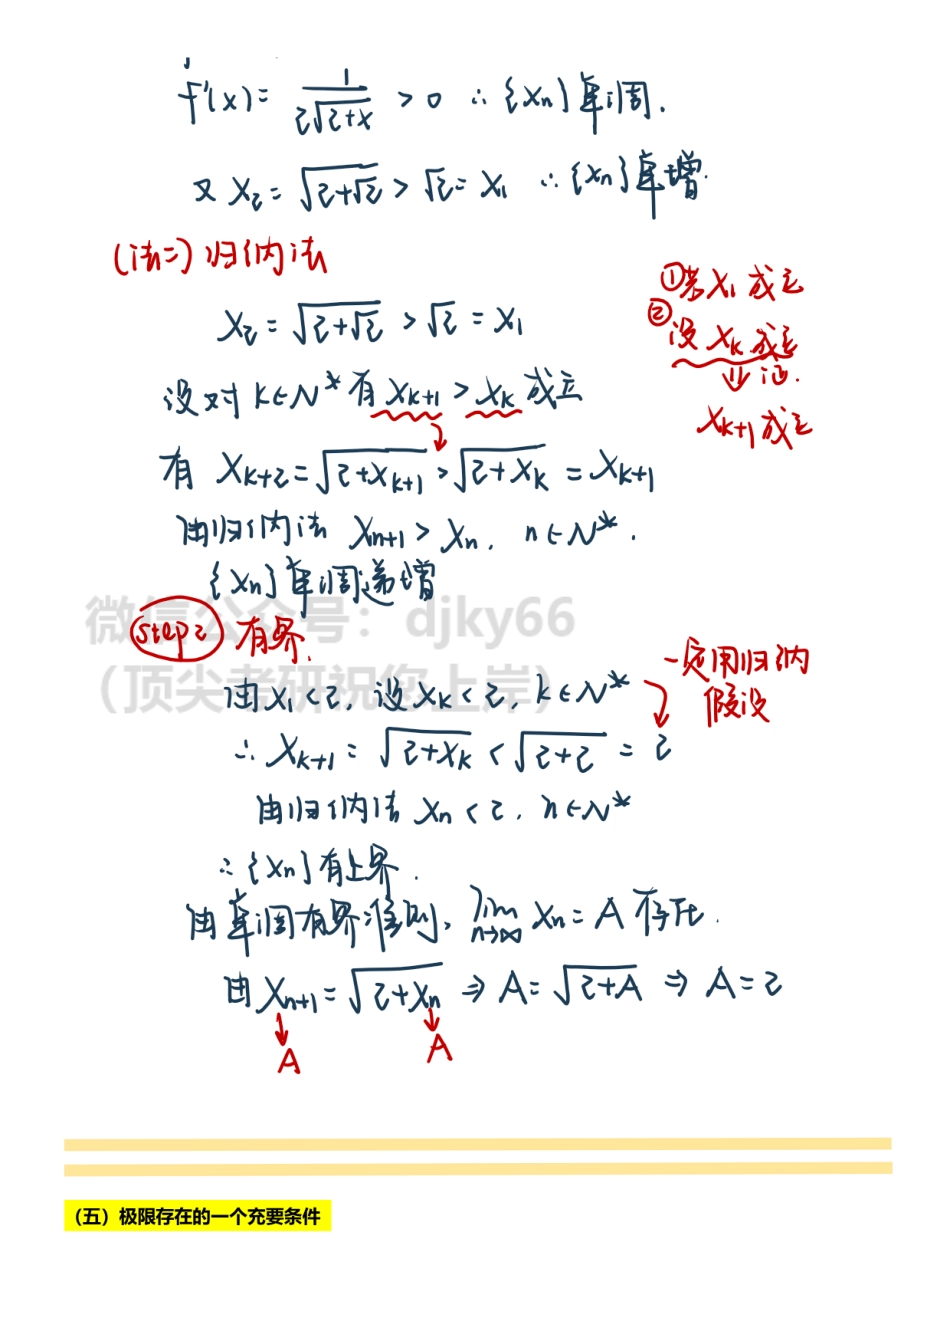 f'(x)= 1/(2√(2+x)) >0 ∴{xn}单调.
又 x₂=√(2+√2)>√2=x₁ ∴{xn}单增.
(法二)归纳法
①若x₁成立
x₂=√(2+√2)>√2=x₁
②设xₖ成立
⇓证.
设对k∈N*有xₖ₊₁>xₖ成立
xₖ₊₁成立
有 xₖ₊₂=√(2+xₖ₊₁)>√(2+xₖ)=xₖ₊₁
由归纳法 xₙ₊₁>xₙ, n∈N*.
{xn}单调递增
微信公众号：djky66
step2 有界.
一定用归纳
假设
（顶尖考研祝您上岸）
由x₁<2, 设xₖ<2, k∈N*
∴xₖ₊₁=√(2+xₖ)<√(2+2)=2
由归纳法 xₙ<2, n∈N*
∴{xn}有上界.
由单调有界准则, lim n→∞ xₙ=A存在.
由xₙ₊₁=√(2+xₙ) ⇒ A=√(2+A) ⇒ A=2
A A
（五）极限存在的一个充要条件